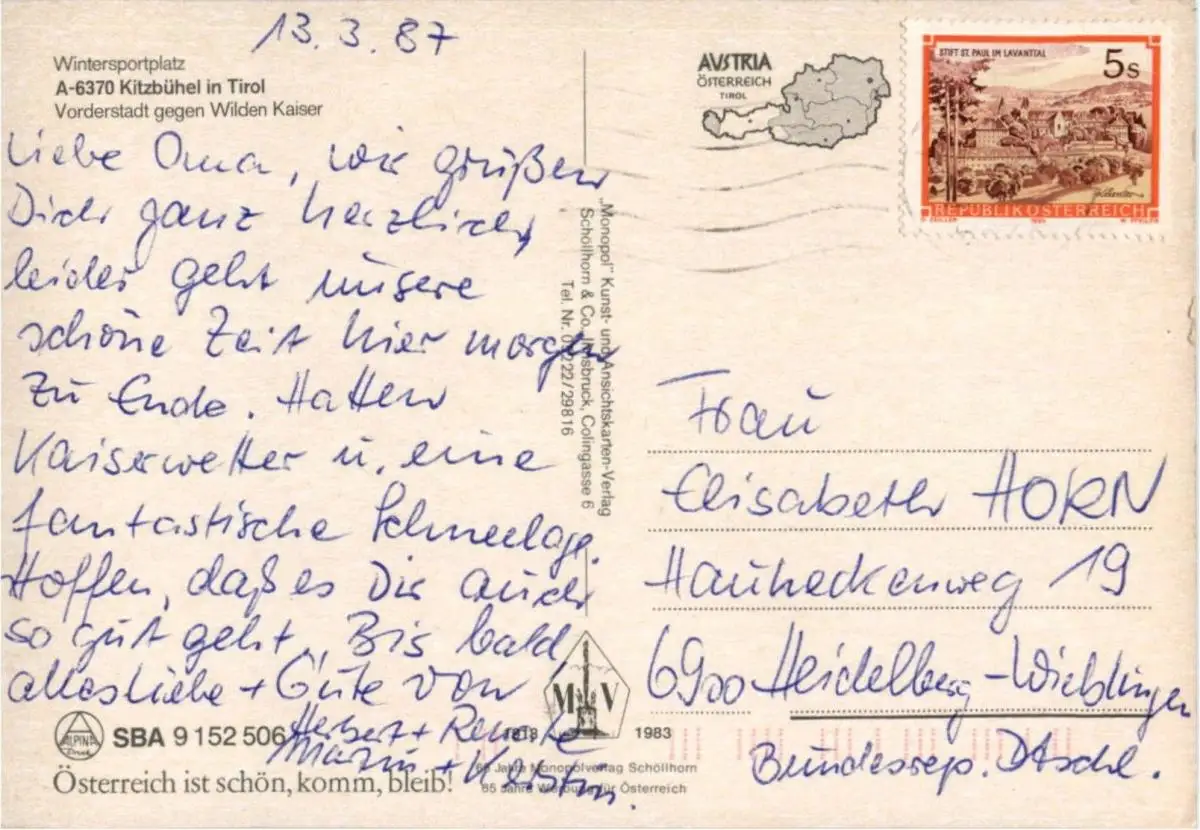 13.3.87
Wintersportplatz
A-6370 Kitzbühel in Tirol
Vorderstadt gegen Wilden Kaiser
Liebe Oma, wir grüßen
Dich ganz herzlich,
leider geht unsere
schöne Zeit hier morgen
zu Ende. Hatten
Kaiserwetter u. eine
fantastische Schneelage.
Hoffen, daß es Dir auch
so gut geht. Bis bald
alles Liebe + Gute von
Herbert + Renate
+ Kerstin.
ALPINA
SBA 9 152 506
Österreich ist schön, komm, bleib!
„Monopol" Kunst- und Ansichtskarten-Verlag
Schöllhorn & Co. Innsbruck, Colingasse 6
Tel. Nr. 05222/29816
M V
1918 1983
65 Jahre Monopolverlag Schöllhorn
65 Jahre Werbung für Österreich
AUSTRIA
ÖSTERREICH
TIROL
STIFT ST. PAUL IM LAVANTTAL
5s
REPUBLIK ÖSTERREICH
Frau
Elisabeth HORN
Hauheckenweg 19
6900 Heidelberg-Wieblingen
Bundesrep. Dtschl.